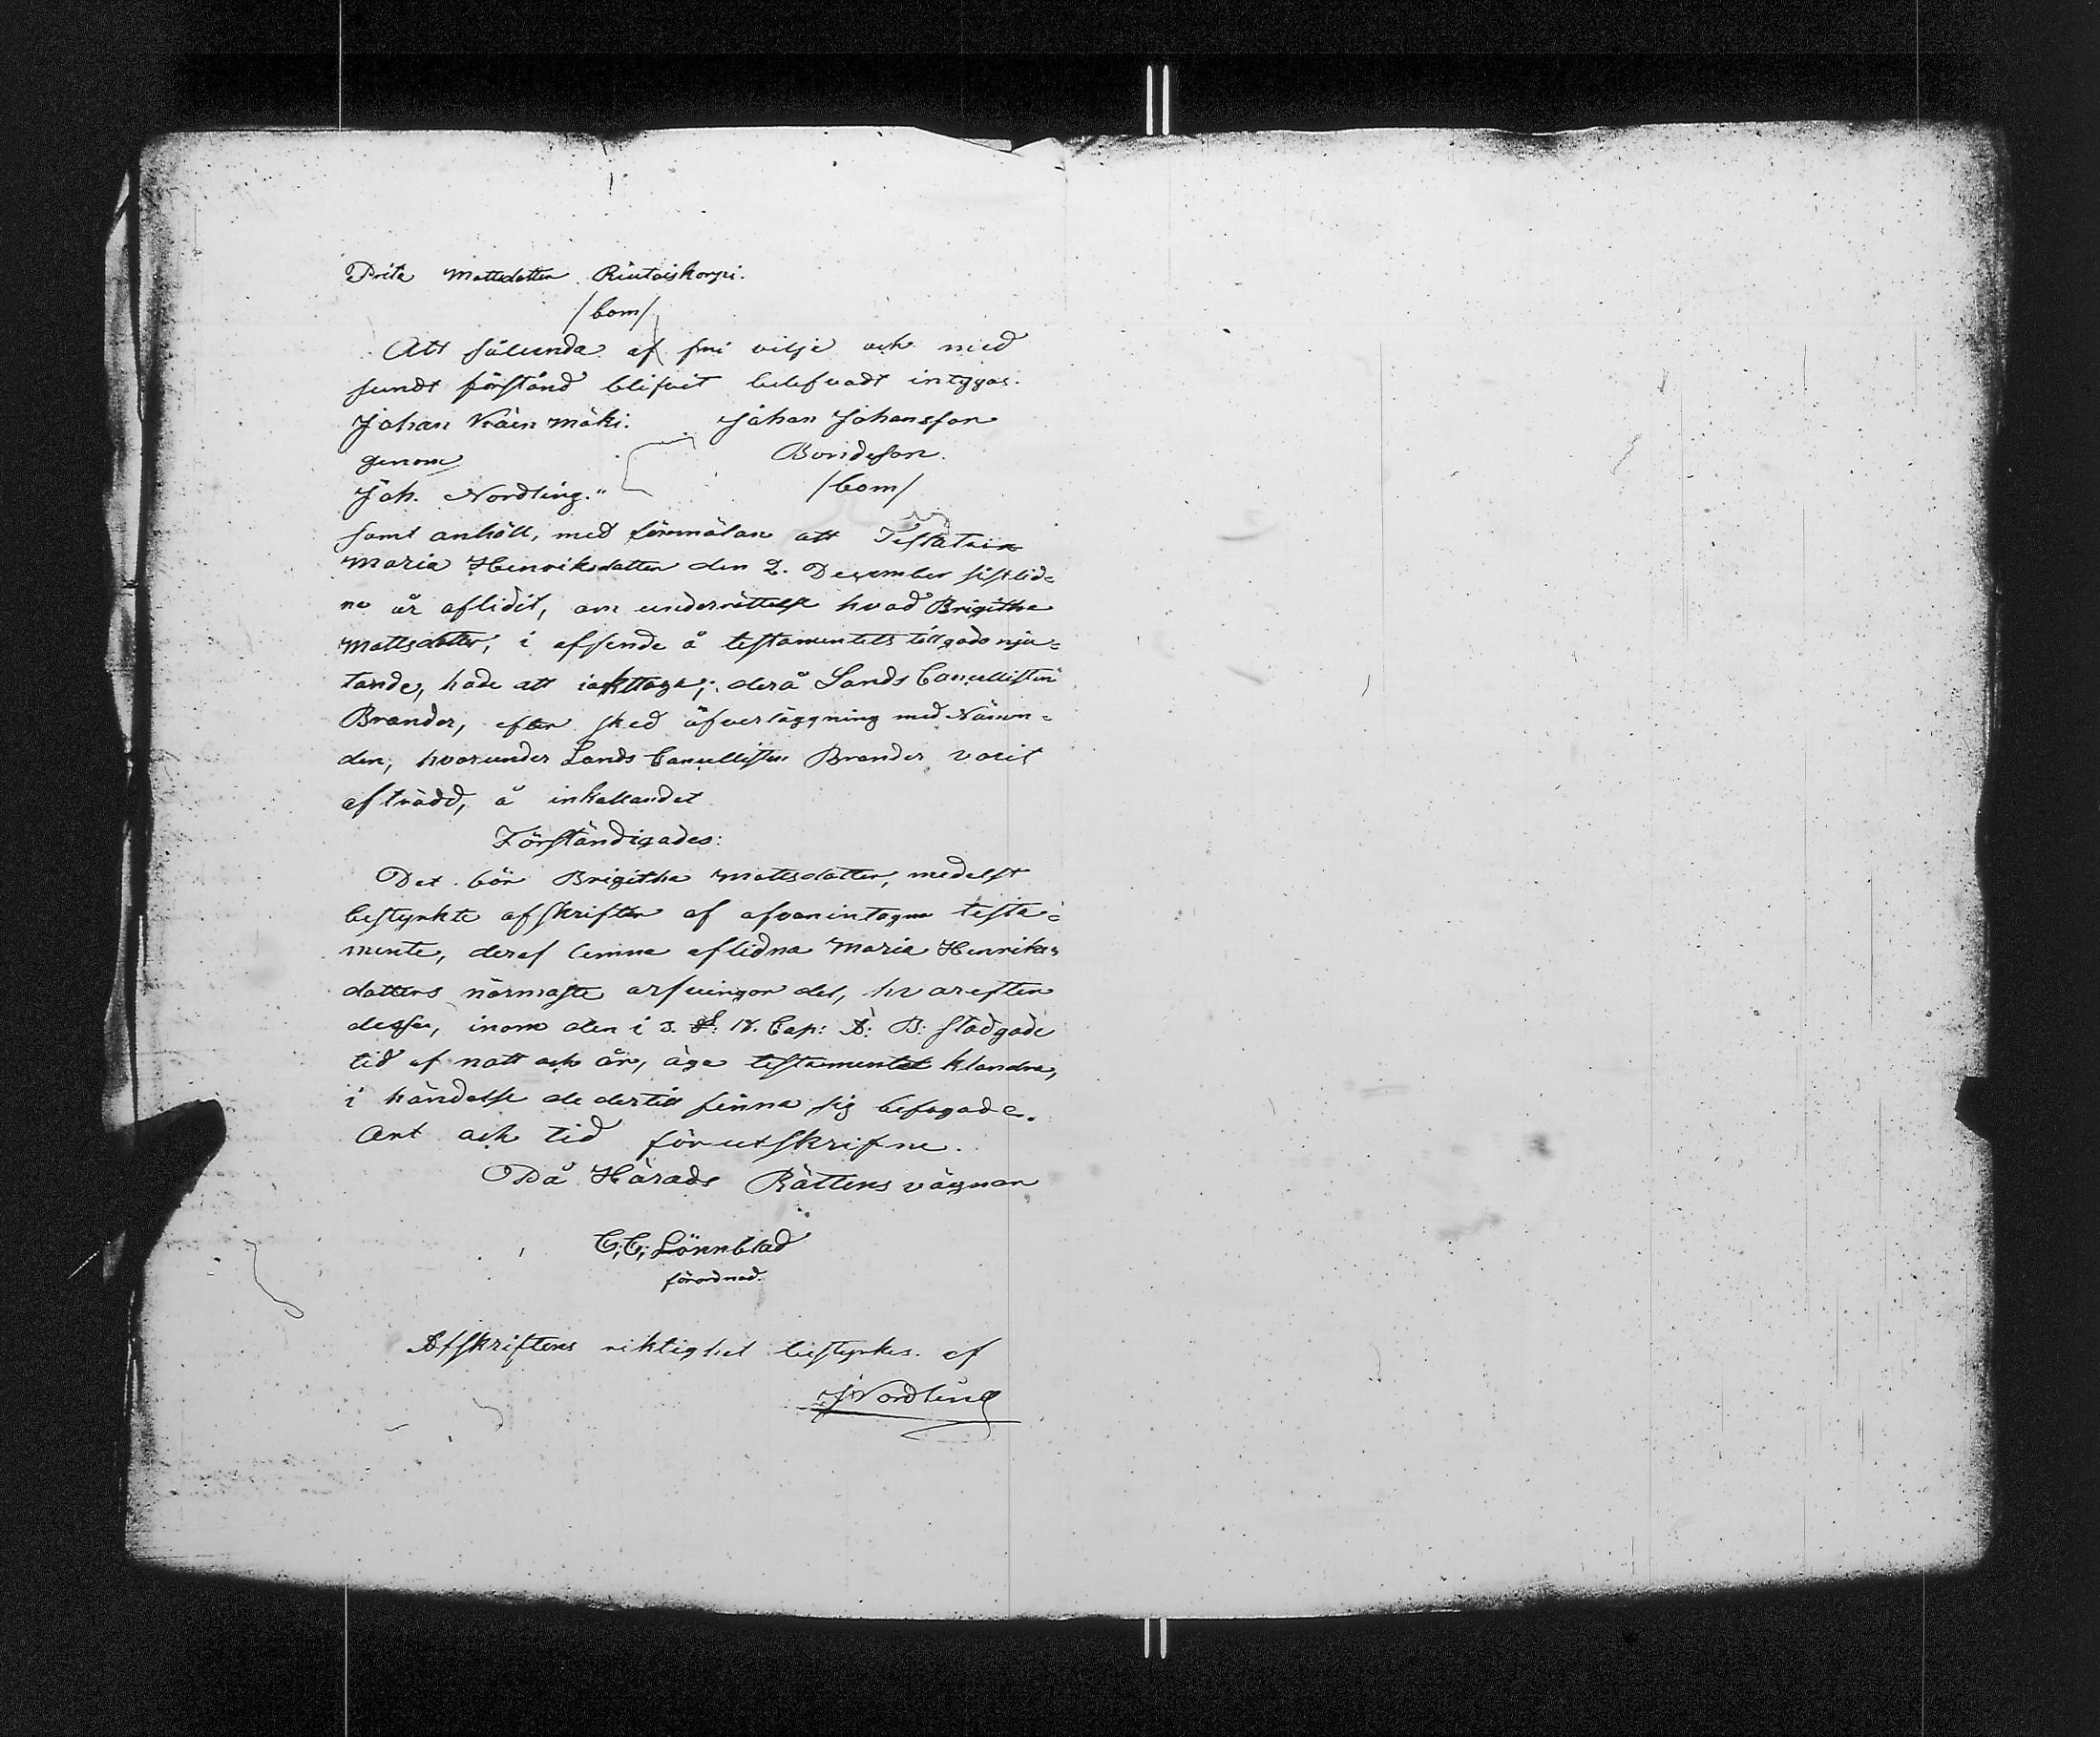 Brita Mattsdotter Rintaiskorpi.
/bom/
Att sålunda af fri vilje och med
sundt förstånd blifvit belefvadt intygas.
Johan Wäinmäki. Johan Johansson
genom Borideson.
Joh. Nordling." /bom/
samt anhöll, med förmälan att Testatrix
Maria Henriksdotter den 2. December sistlid=
ne år aflidit, om underrättelse hvad Brigitha
Mattsdotter, i afseende å testamentets tillgodonju=
tande, hade att iakttaga; derå Lands Cancellisten
Brander, efter sked öfverläggning med Nämn=
den, hvarunder Lands Cancellisten Brander varit
afträdd, å inkallandet
Förständigades:
Det bör Brigitha Mattsdotter, medelst
bestyrkte afskrifter af ofvanintagne testa=
mente, deraf lemna aflidna Maria Henriks=
dotters närmaste arfvingar del, hvarefter
desse, inom den i 3. §. 18. Cap: Ä: B: stadgade
tid af natt och år, äga testamentet klandra,
i händelse de dertill finna sig befogade.
Ort och tid förutskrifne.
På Härads Rättens vägnar
C: C: Lönnblad
förordnad.
Afskriftens riktighet bestyrkes af
J Nordling